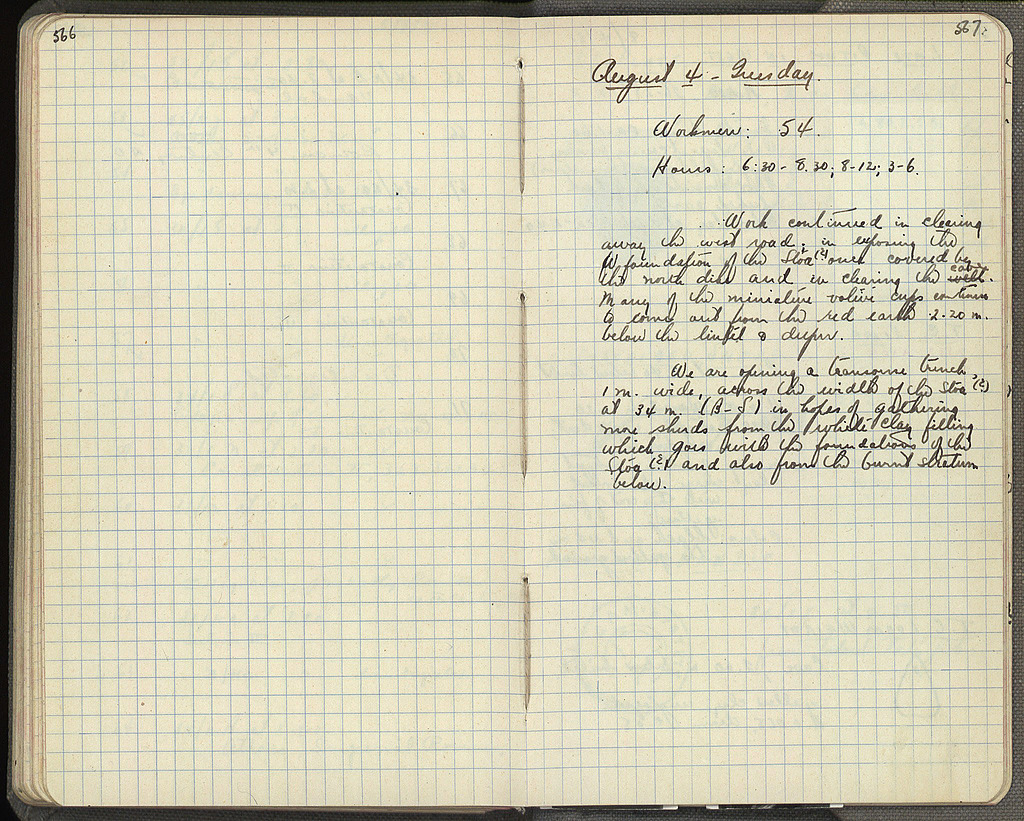 566
567
August 4 - Tuesday.
Workmen: 54.
Hours: 6:30 - 8.30; 8-12; 3-6.
Work continued in clearing
away the west road; in exposing the
W foundation of the Stoa (?) once covered by
the north dike and in clearing the
Many of the miniature votive cups continue
to come out from the red earth 2.20 m.
below the lintel & deeper.
We are opening a transverse trench,
1 m. wide, across the width of the Stoa (?)
at 34 m. (B-S) in hopes of gathering
more sherds from the white clay filling
which goes with the foundations of the
Stoa (?) and also from the burnt stratum
below.